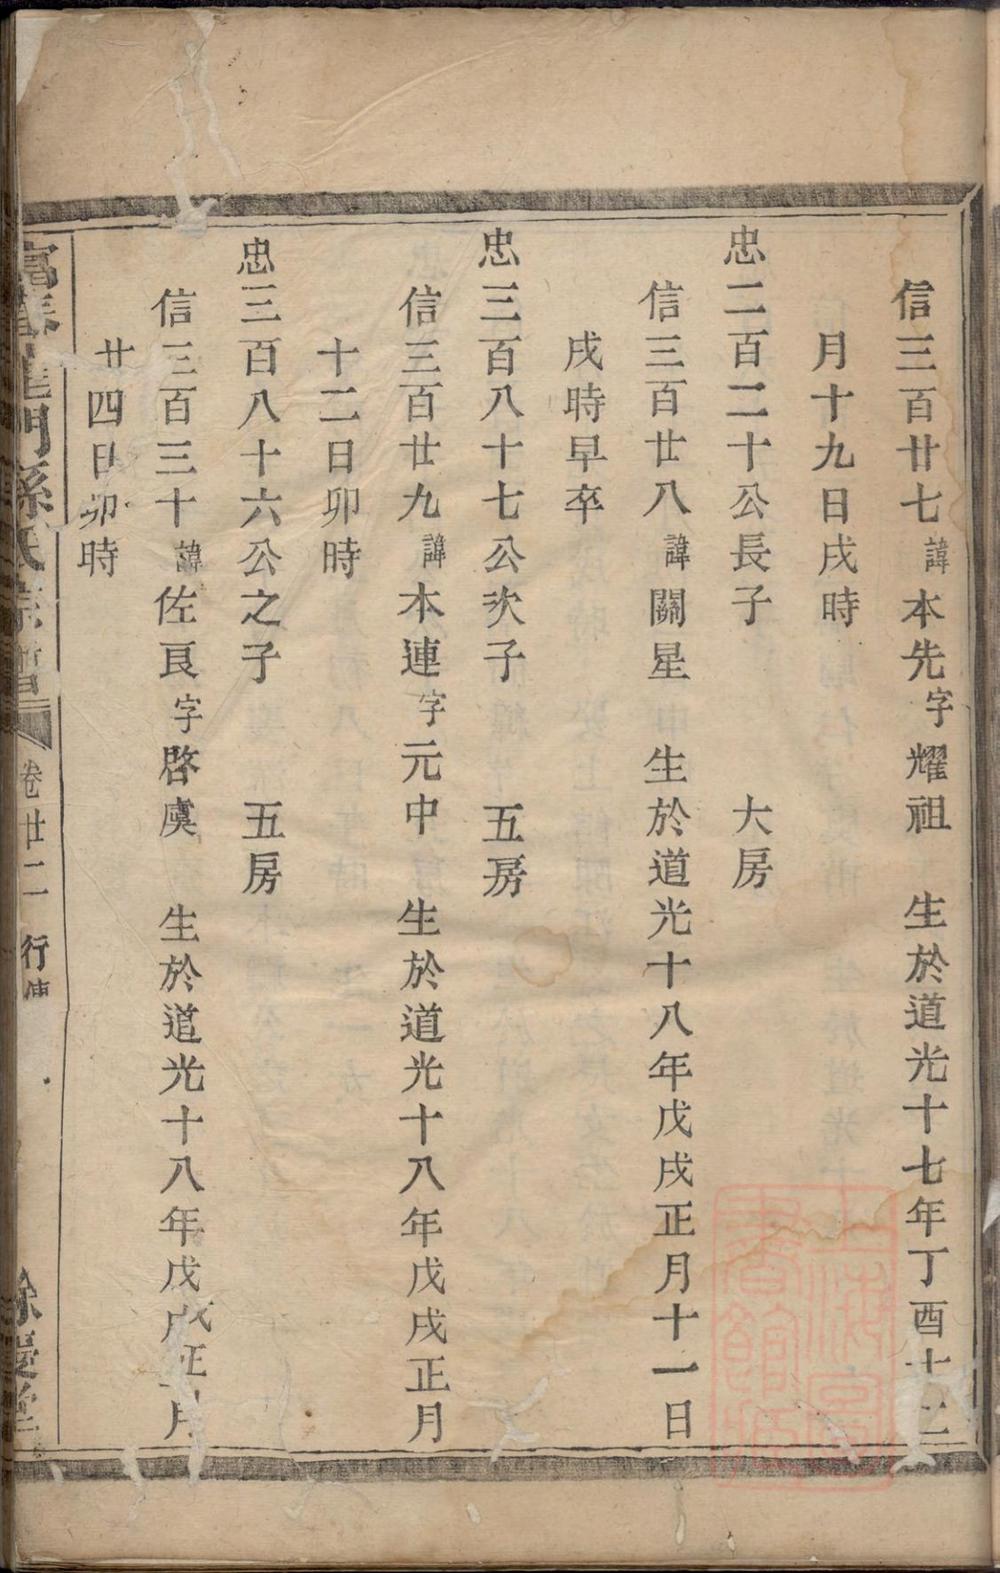 信三百廿七諱本先字耀祖　生於道光十七年丁酉十二
月十九日戌時
忠二百二十公長子　大房
信三百廿八諱關星　生於道光十八年戊戌正月十一日
戌時早卒
忠三百八十七公次子　五房
信三百廿九諱本連字元中　生於道光十八年戊戌正月
十二日卯時
忠三百八十六公之子　五房
信三百三十諱佐良字啓虞　生於道光十八年戊戌正月
廿四日卯時
富春龍門孫氏宗譜　卷廿二　行傳　餘慶堂